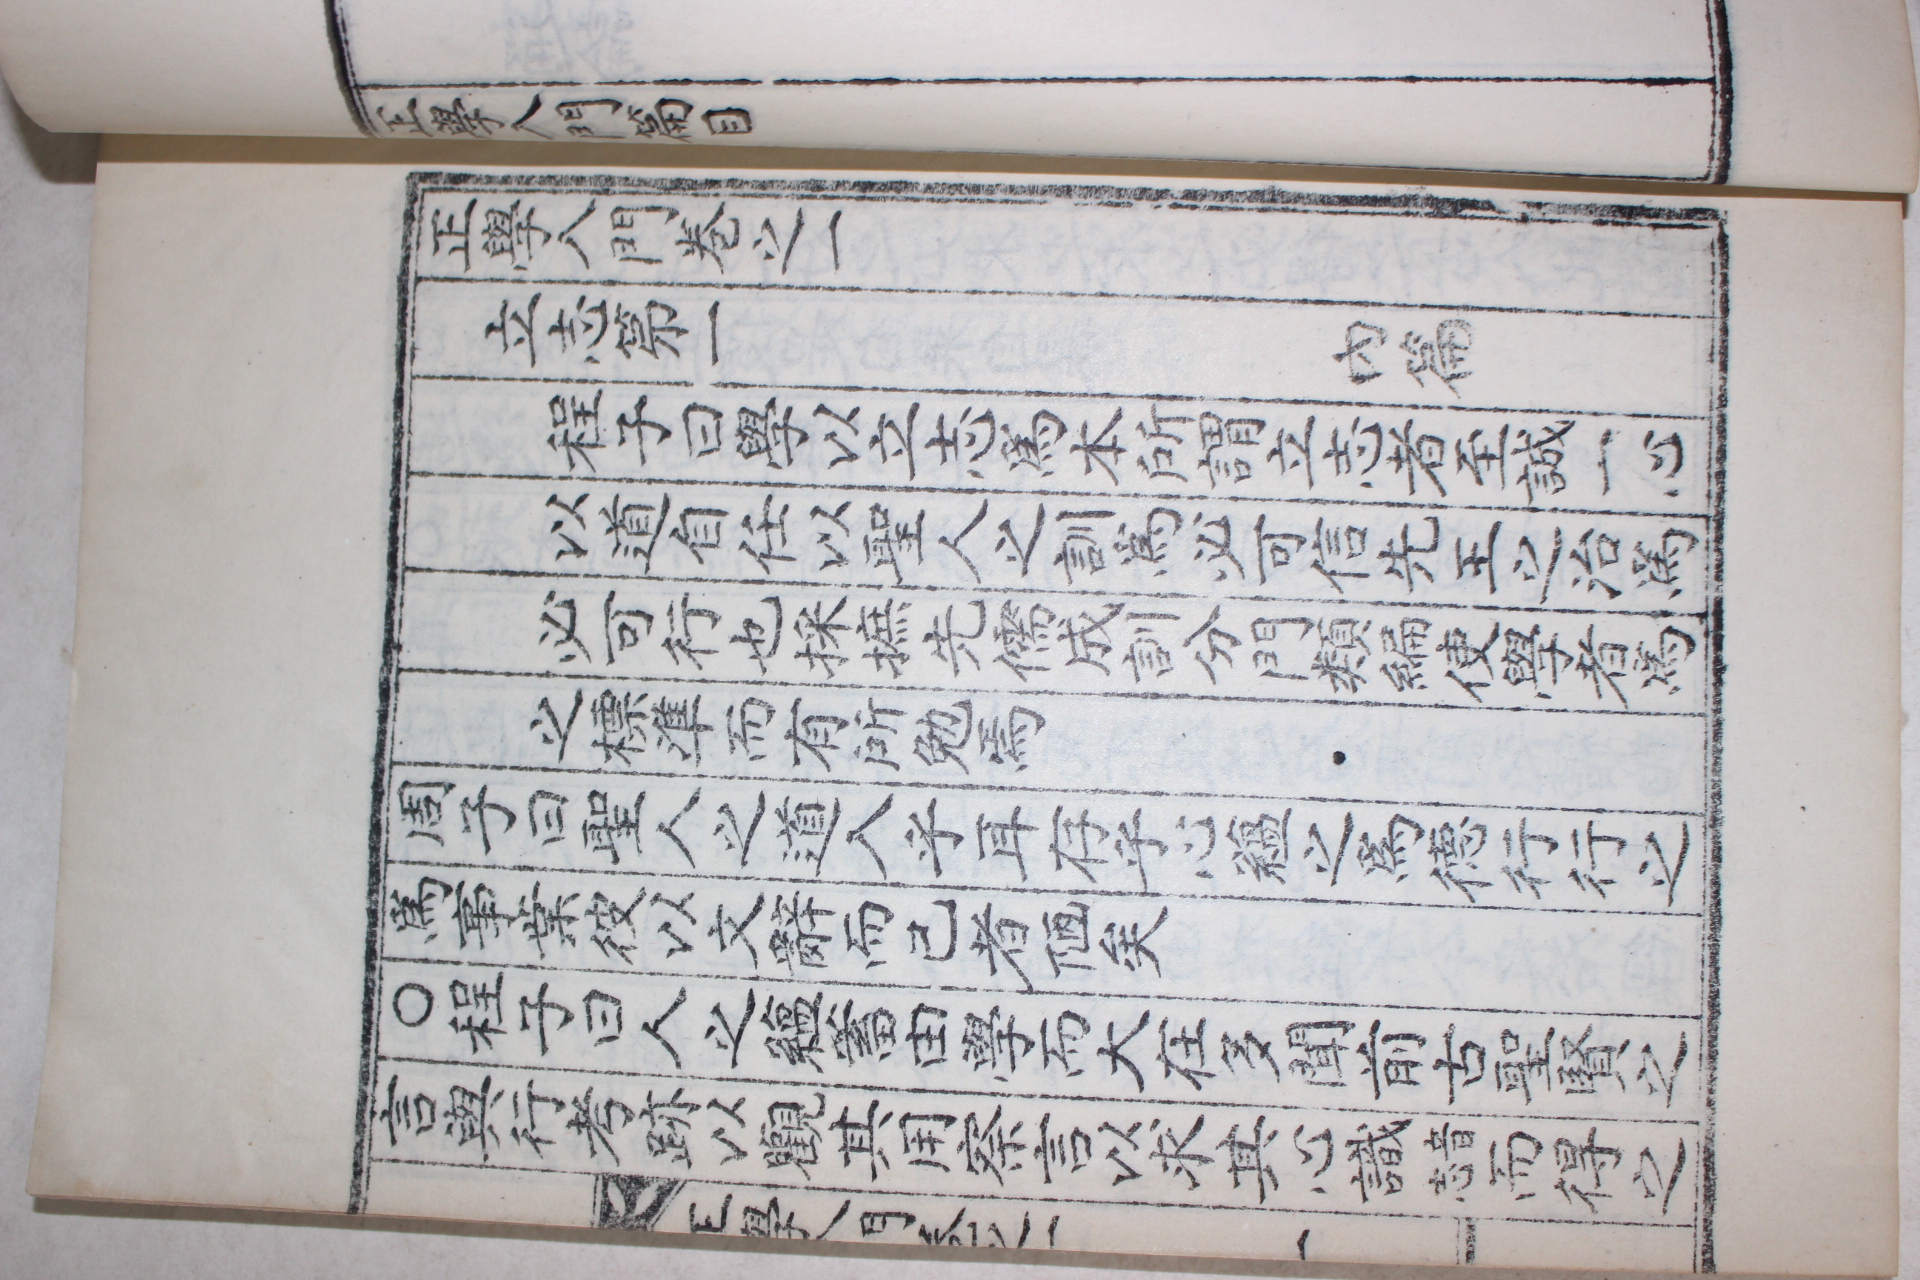 正學入門篇目
正學入門卷之一
立志第一 內篇
程子曰學以立志爲本所謂立志者至誠一心
以道自任以聖人之訓爲必可信先王之治爲
必可行也採摭先儒成訓分門類編使學者爲
之標準而有所勉焉
周子曰聖人之道入乎耳存乎心蘊之爲德行行之
爲事業彼以文辭而已者陋矣
○程子曰人之蘊蓄由學而大在多聞前古聖賢之
言與行考跡以觀其用察言以求其心識諳而得之
正學入門卷之一 一